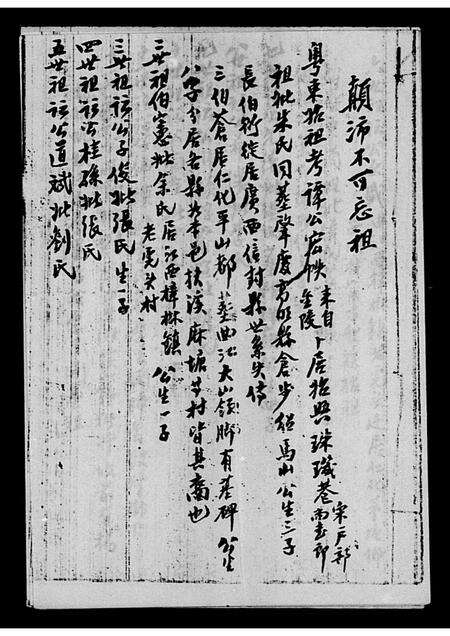 顛沛不可忘祖
粵東始祖考諱公宕帙來自金陵卜居始興珠璣巷宋戶部尚書郎
祖妣朱氏同墓肇慶高明縣倉步徑馬山公生三子
長伯衍徙居廣西信封縣世系失傳
三伯蒼居仁化平山都墓曲江大山領腳有墓碑公生
八子分居各縣本邑扶溪麻塘等村皆其裔也
三世祖伯憲妣余氏居江西樟林鎮老虎头村公生一子
三世祖諱公子俊妣張氏生一子
四世祖諱公桂孫妣張氏
五世祖諱公道斌妣劉氏